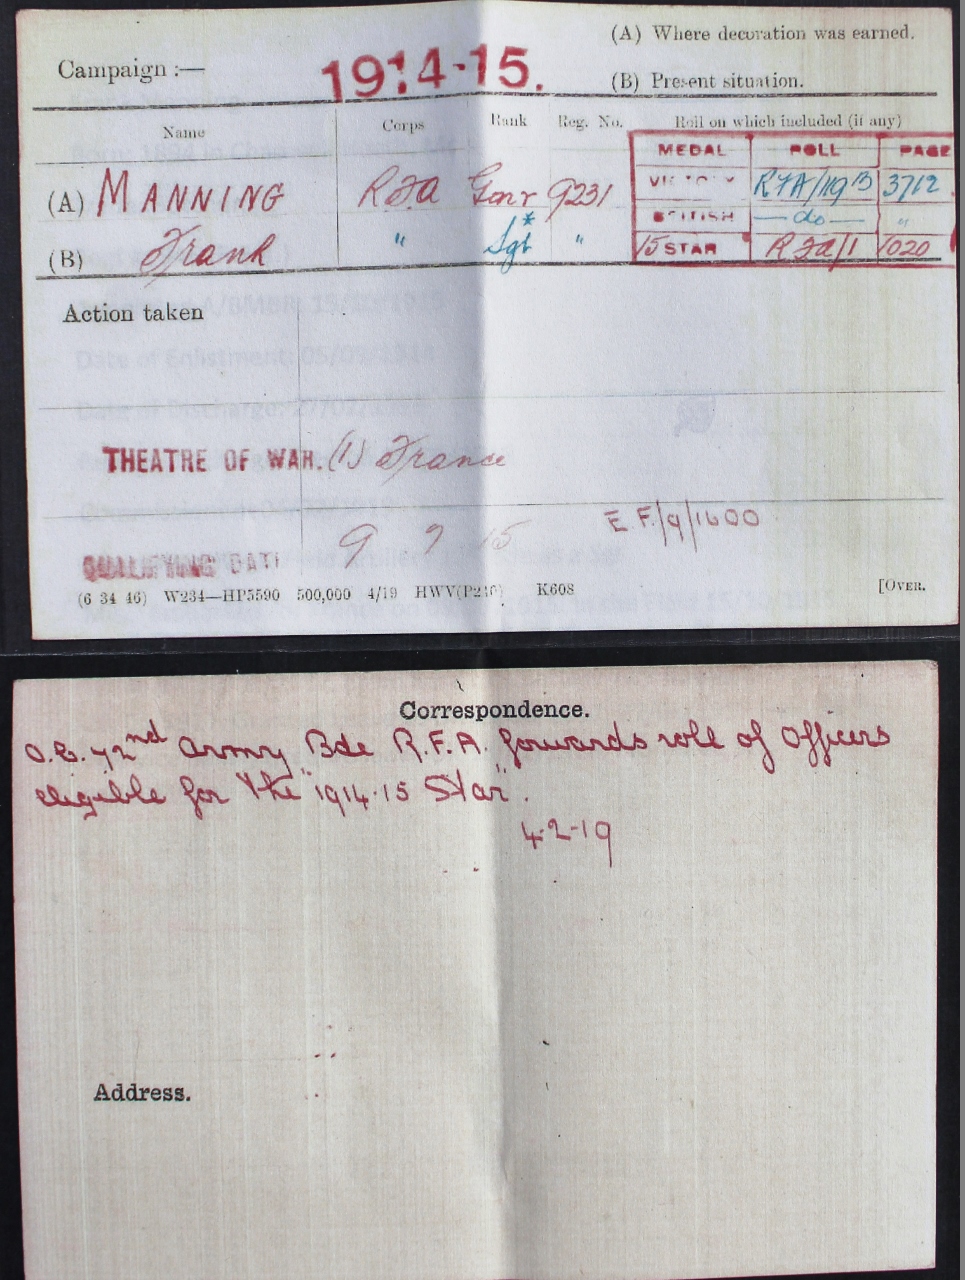 (A) Where decoration was earned.
Campaign :— 1914-15.
(B) Present situation.
Name Corps Rank Reg. No. Roll on which included (if any)
MEDAL ROLL PAGE
(A) MANNING RFA Gnr 9231 VICTORY RFA/119B 3712
BRITISH —do— "
(B) Frank " Sgt* " 15 STAR RFA/1 1020
Action taken
THEATRE OF WAR. (1) France
E.F./9/1600
QUALIFYING DATE 9 7 15
(6 34 46) W234—HP5590 500,000 4/19 HWV(P240) K608 [OVER.
Correspondence.
O.C. 72nd Army Bde R.F.A. forwards role of Officers
eligible for the "1914-15 Star".
4-2-19
Address.